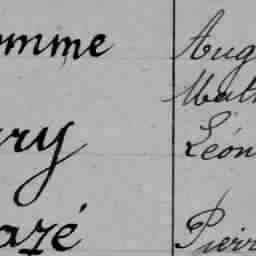 omme Aug
Math
ry Léon
azé Pierr